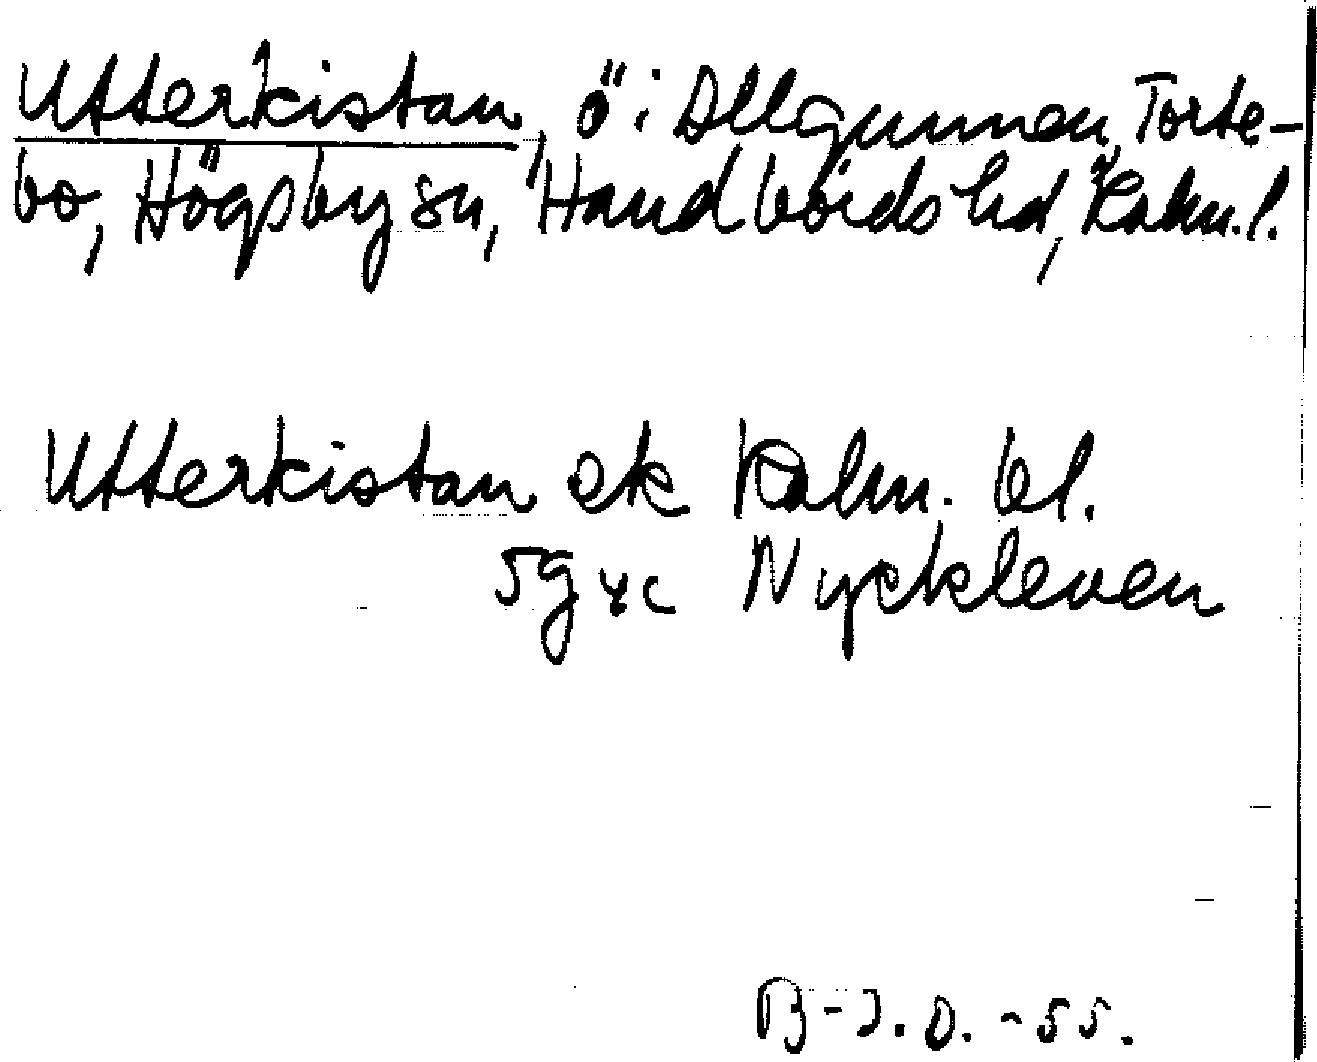 Utterkistan, ö i Allgunnen, Torte-
bo, Högsby sn, Handbörds hd, Kalm. l.
Utterkistan ek Kalm. bl.
5g yc Nyckleven
B-I.O. -55.